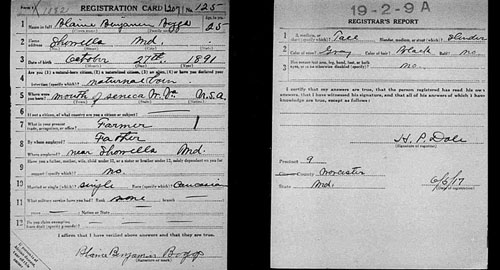 REGISTRATION CARD No. 125
1 Name in full Blaine Benjamin Boggs Age, in yrs. 25
2 Home address Showella Md.
3 Date of birth October 27th 1891
4 Are you (1) a natural-born citizen, (2) a naturalized citizen, (3) an alien, (4) or have you declared your intention (specify which)? natural born
5 Where were you born? mouth of seneca W. Va. U.S.A.
6 If not a citizen, of what country are you a citizen or subject?
7 What is your present trade, occupation, or office? Farmer 1
8 By whom employed? Father
Where employed? near Showella Md.
9 Have you a father, mother, wife, child under 12, or a sister or brother under 12, solely dependent on you for support (specify which)? no
10 Married or single (which)? single Race (specify which)? Caucasian
11 What military service have you had? Rank none branch
years Nation or State
12 Do you claim exemption from draft (specify grounds)?
I affirm that I have verified above answers and that they are true.
Blaine Benjamin Boggs
(Signature or mark)
19-2-9 A
REGISTRAR'S REPORT
1 Tall, medium, or short (specify which)? Tall Slender, medium, or stout (which)? Slender
2 Color of eyes? Gray Color of hair? Black Bald? no
3 Has person lost arm, leg, hand, foot, or both eyes, or is he otherwise disabled (specify)? no.
I certify that my answers are true, that the person registered has read his own answers, that I have witnessed his signature, and that all of his answers of which I have knowledge are true, except as follows:
H. P. Dale
(Signature of registrar)
Precinct 9
County Worcester
State Md.
6/5/17
(Date of registration)